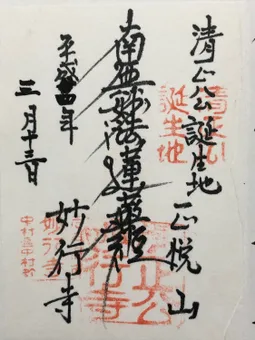 清正公誕生地 正悦山
清正公
誕生地
南無妙法蓮華経
平成四年
三月十三日
妙行寺
妙行寺
中村区中村町